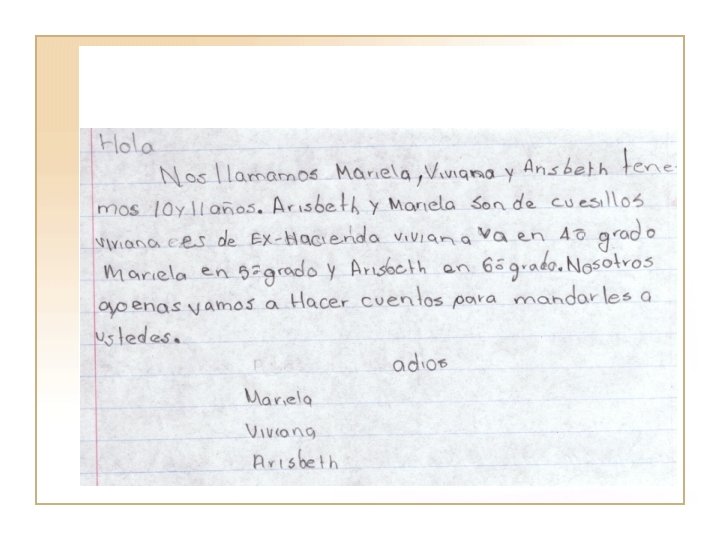 Hola
Nos llamamos Mariela, Viviana y Arisbeth tene
mos 10 y 11 años. Arisbeth y Mariela son de cuesillos
viviana es de Ex-Hacienda viviana va en 4º grado
Mariela en 5º grado y Arisbeth en 6º grado. Nosotros
apenas vamos a Hacer cuentos para mandarles a
ustedes.
adios
Mariela
Viviana
Arisbeth